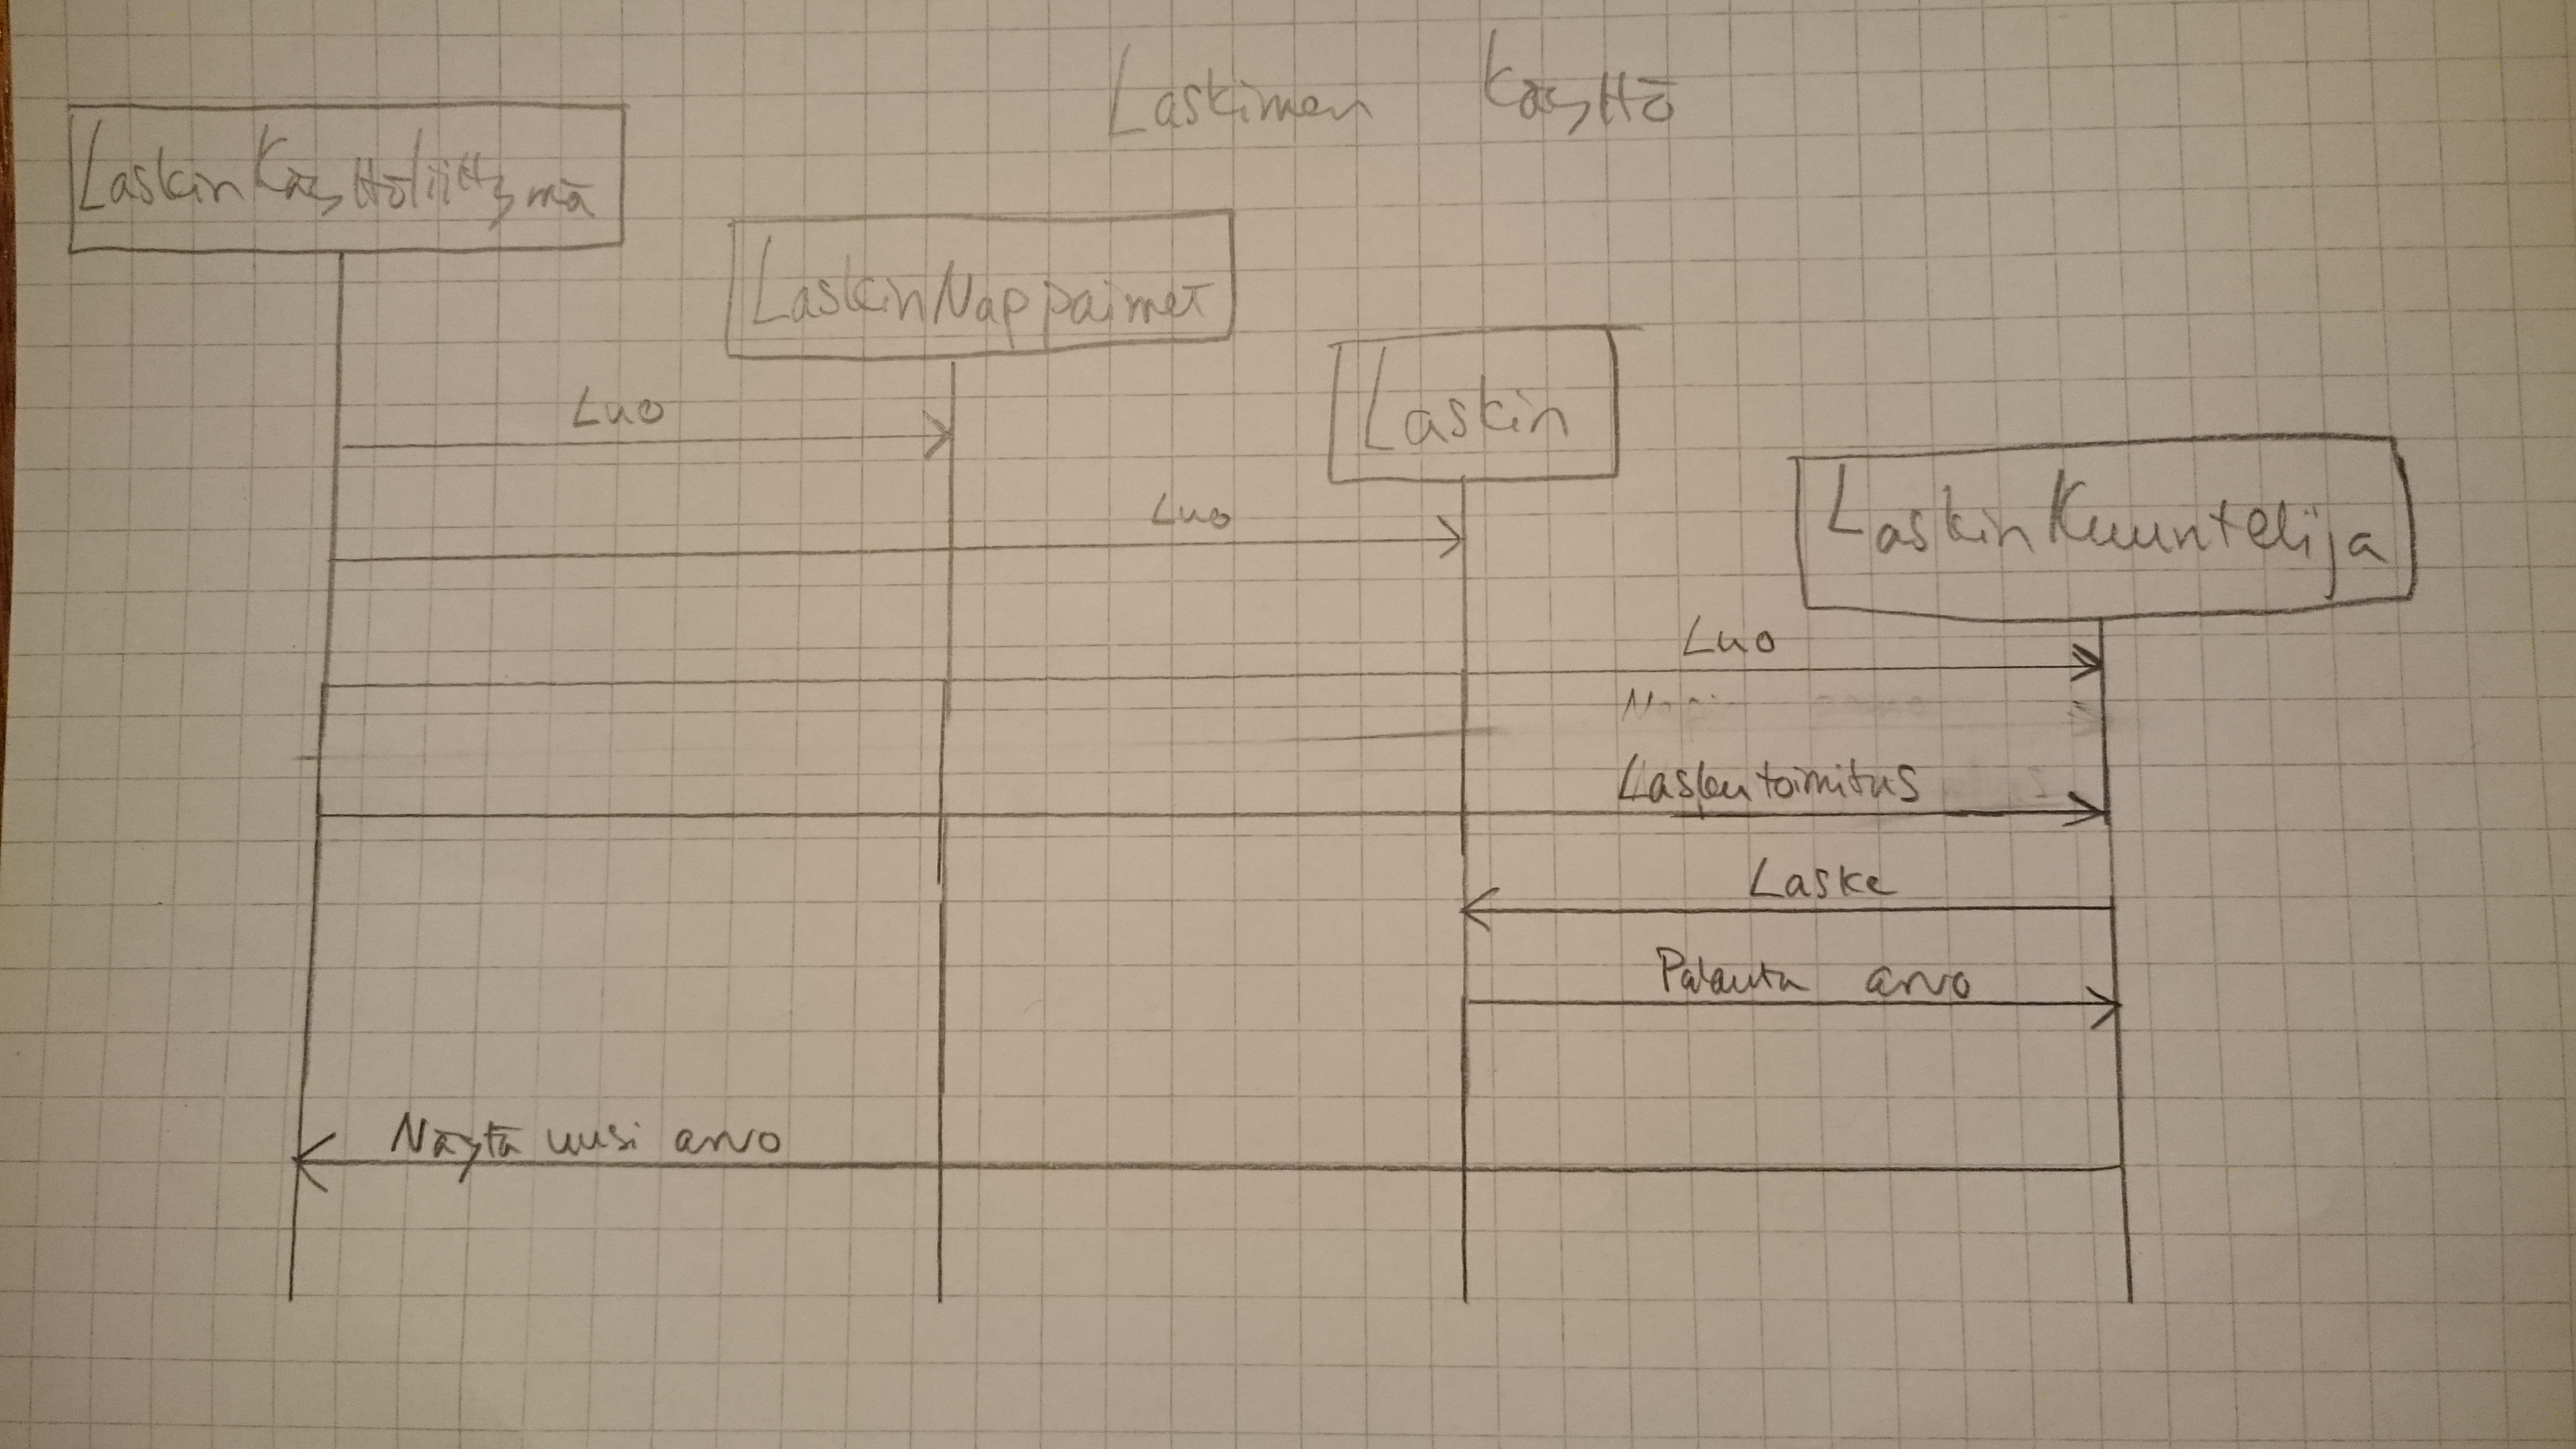 Laskimen Käyttö
LaskinKäyttöliittymä
LaskinNappaimet
Laskin
LaskinKuuntelija
Luo
Luo
Luo
Laskutoimitus
Laske
Palauta arvo
Näytä uusi arvo